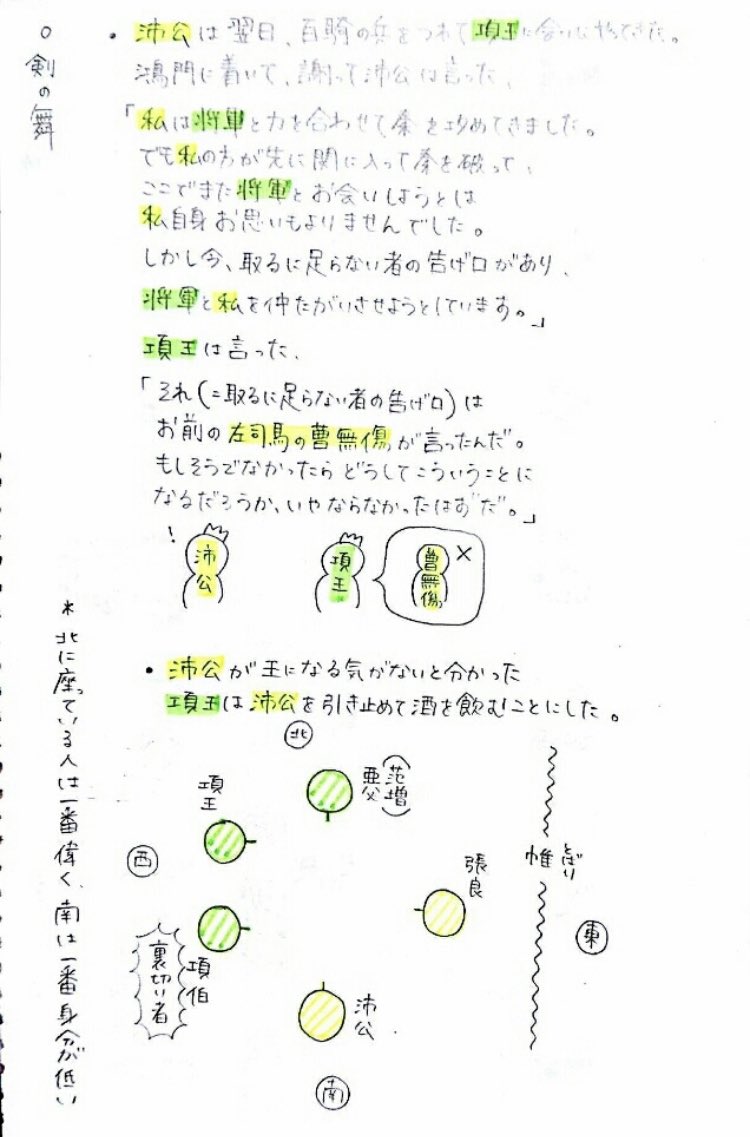 ○剣の舞
・沛公は翌日、百騎の兵をつれて項王に会いにやってきた。
鴻門に着いて、謝って沛公は言った、
「私は将軍と力を合わせて秦を攻めてきました。
でも私の方が先に関に入って秦を破って、
ここでまた将軍とお会いしようとは
私自身お思いもよりませんでした。
しかし今、取るに足らない者の告げ口があり、
将軍と私を仲たがいさせようとしています。」
項王は言った、
「それ(=取るに足らない者の告げ口)は
お前の左司馬の曹無傷が言ったんだ。
もしそうでなかったらどうしてこういうことに
なるだろうか、いやならなかったはずだ。」
!
沛公
項王
曹無傷
×
・沛公が王になる気がないと分かった
項王は沛公を引き止めて酒を飲むことにした。
北
亜父(范増)
項王
西
張良
帷
とばり
東
項伯
裏切り者
沛公
南
*北に座っている人は一番偉く、南は一番身分が低い